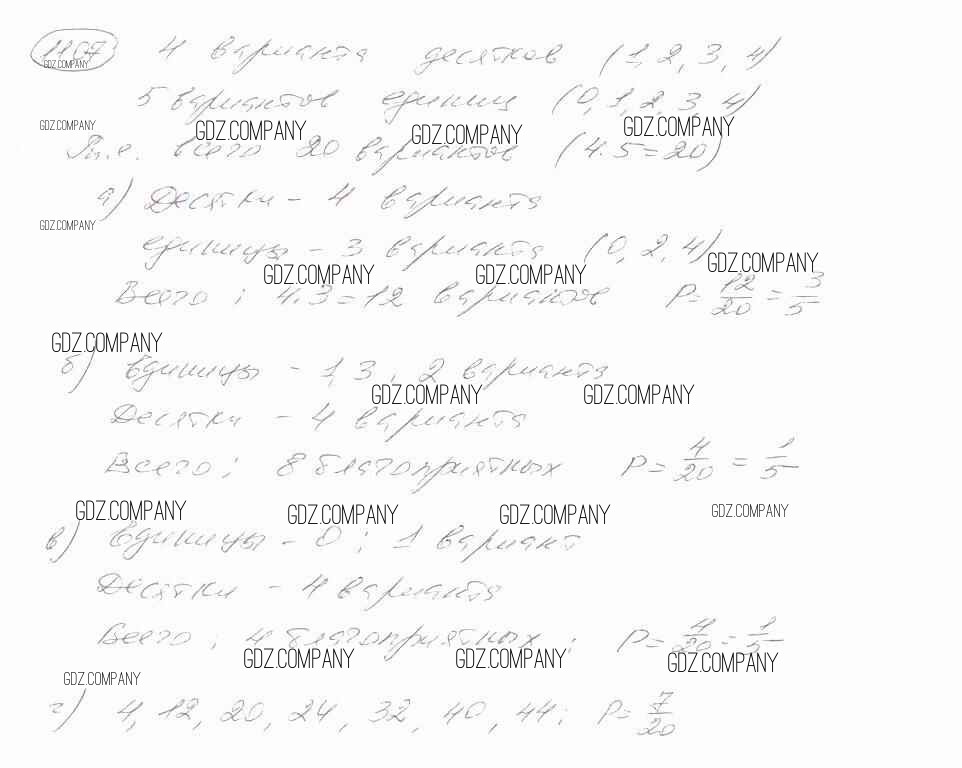 1107 4 варианта десятков (1, 2, 3, 4)
GDZ.COMPANY
5 вариантов единиц (0, 1, 2, 3, 4)
GDZ.COMPANY GDZ.COMPANY GDZ.COMPANY GDZ.COMPANY
Т.е. всего 20 вариантов (4.5=20)
а) Десятки - 4 варианта
GDZ.COMPANY
единицы - 3 варианта (0, 2, 4)
GDZ.COMPANY GDZ.COMPANY GDZ.COMPANY
Всего: 4.3=12 вариантов P= 12/20 = 3/5
GDZ.COMPANY
б) Единицы - 1, 3, 2 варианта
GDZ.COMPANY GDZ.COMPANY
Десятки - 4 варианта
Всего: 8 благоприятных P= 4/20 = 1/5
GDZ.COMPANY GDZ.COMPANY GDZ.COMPANY GDZ.COMPANY
в) Единицы - 0; 1 вариант
Десятки - 4 варианта
Всего: 4 благоприятных; P= 4/20 = 1/5
GDZ.COMPANY GDZ.COMPANY GDZ.COMPANY
GDZ.COMPANY
г) 4, 12, 20, 24, 32, 40, 44; P= 7/20